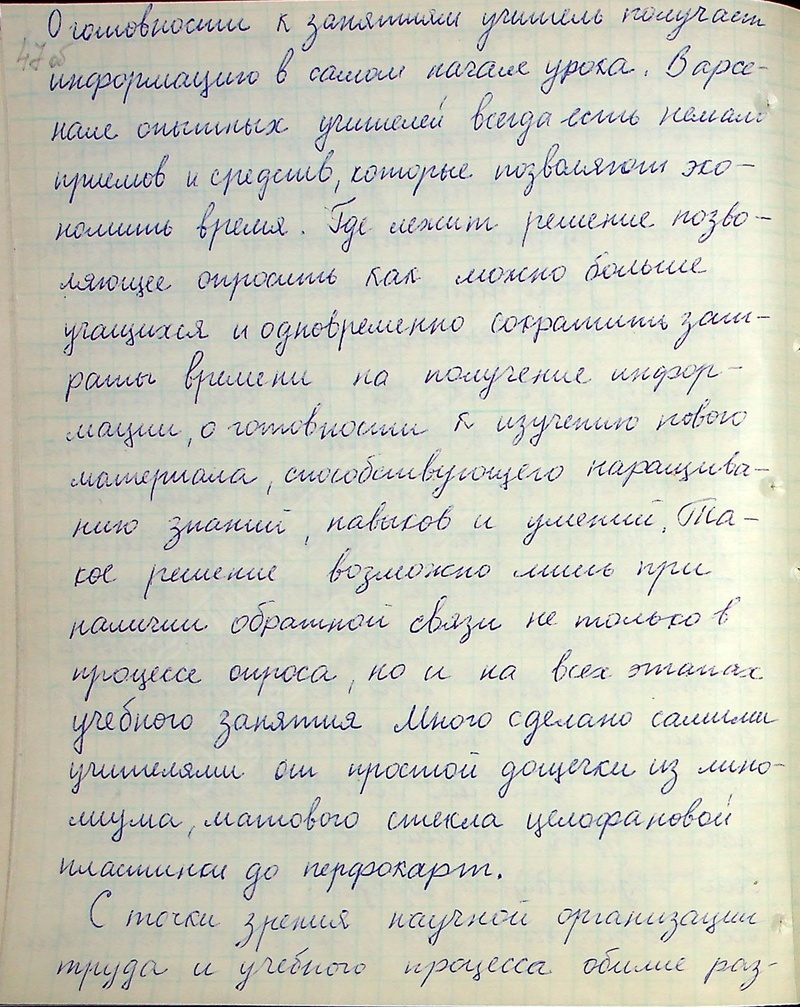 О готовности к занятиям учитель получает
47 об
информацию в самом начале урока. В арсе-
нале опытных учителей всегда есть немало
приемов и средств, которые позволяют эко-
номить время. Где лежит решение позво-
ляющее опросить как можно больше
учащихся и одновременно сократить зат-
раты времени на получение инфор-
мации, о готовности к изучению нового
материала, способствующего наращива-
нию знаний, навыков и умений. Та-
кое решение возможно лишь при
наличии обратной связи не только в
процессе опроса, но и на всех этапах
учебного занятия Много сделано самими
учителями от простой дощечки из лино-
лиума, матового стекла целофановой
пластинки до перфокарт.
С точки зрения научной организации
труда и учебного процесса обилие раз-